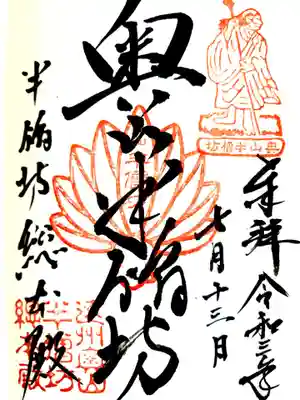 奉拝 令和三年
七月十三日
奥山半僧坊
半僧坊総本殿
奥山半僧坊